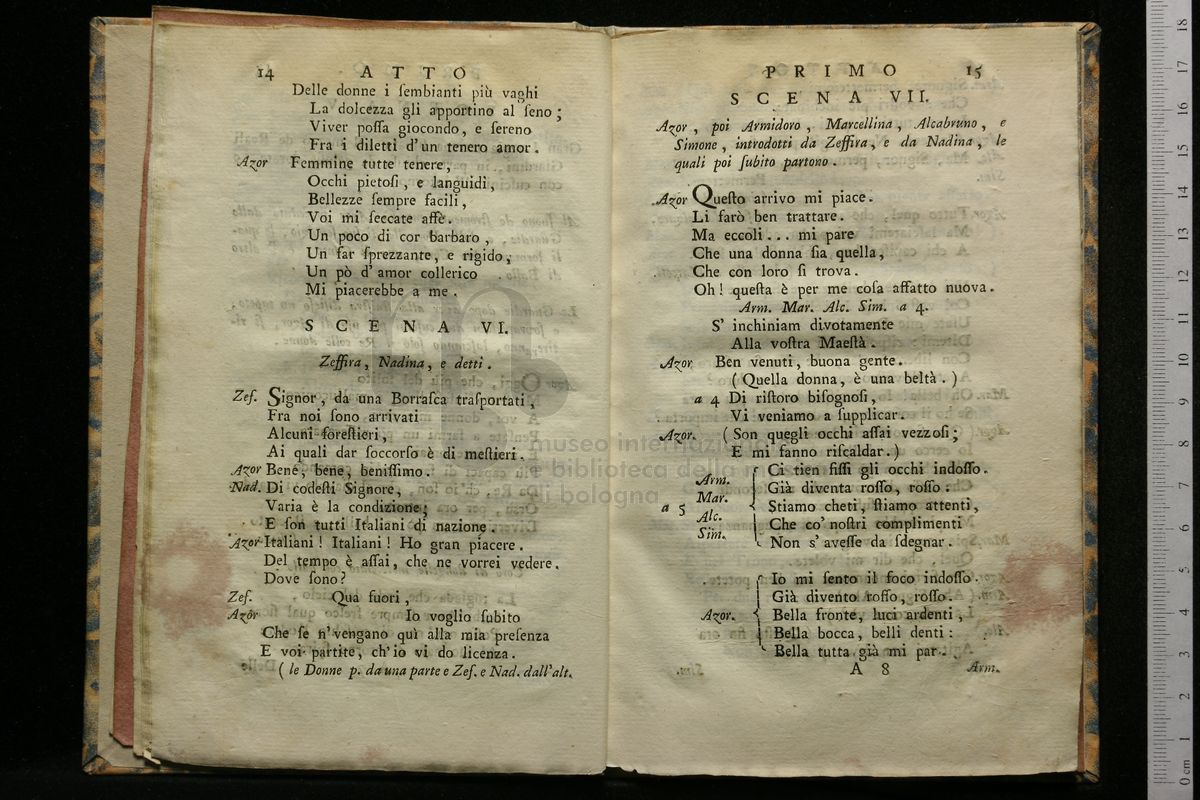 14 ATTO
Delle donne i ſembianti più vaghi
La dolcezza gli apportino al ſeno;
Viver poſſa giocondo, e ſereno
Fra i diletti d'un tenero amor.
Azor Femmine tutte tenere,
Occhi pietoſi, e languidi,
Bellezze ſempre facili,
Voi mi ſeccate affè.
Un poco di cor barbaro,
Un far ſprezzante, e rigido,
Un pò d'amor collerico
Mi piacerebbe a me.
SCENA VI.
Zeffira, Nadina, e detti.
Zef. Signor, da una Borraſca traſportati,
Fra noi ſono arrivati
Alcuni foreſtieri,
Ai quali dar ſoccorſo è di meſtieri.
Azor Bene, bene, beniſſimo.
Nad. Di codeſti Signore,
Varia è la condizione;
E ſon tutti Italiani di nazione.
Azor Italiani! Italiani! Ho gran piacere.
Del tempo è aſſai, che ne vorrei vedere.
Dove ſono?
Zef. Qua fuori,
Azor Io voglio ſubito
Che ſe n'vengano quì alla mia preſenza
E voi partite, ch'io vi do licenza.
(le Donne p. da una parte e Zef. e Nad. dall'alt.
PRIMO 15
SCENA VII.
Azor, poi Armidoro, Marcellina, Alcabruno, e
Simone, introdotti da Zeffira, e da Nadina, le
quali poi ſubito partono.
Azor Queſto arrivo mi piace.
Li farò ben trattare.
Ma eccoli... mi pare
Che una donna ſia quella,
Che con loro ſi trova.
Oh! queſta è per me coſa affatto nuova.
Arm. Mar. Alc. Sim. a 4.
S' inchiniam divotamente
Alla voſtra Maeſtà.
Azor. Ben venuti, buona gente.
(Quella donna, è una beltà.)
a 4 Di riſtoro biſognoſi,
Vi veniamo a ſupplicar.
Azor. (Son quegli occhi aſſai vezzoſi;
E mi fanno riſcaldar.)
a 5
Arm.
Mar.
Alc.
Sim.
Ci tien fiſſi gli occhi indoſſo.
Già diventa roſſo, roſſo.
Stiamo cheti, ſtiamo attenti,
Che co' noſtri complimenti
Non s'aveſſe da ſdegnar.
Azor.
Io mi ſento il foco indoſſo.
Già divento roſſo, roſſo.
Bella fronte, luci ardenti,
Bella bocca, belli denti:
Bella tutta già mi par.
A 8 Arm.
museo internazionale
e biblioteca della
di bologna
0 cm 1 2 3 4 5 6 7 8 9 10 11 12 13 14 15 16 17 18